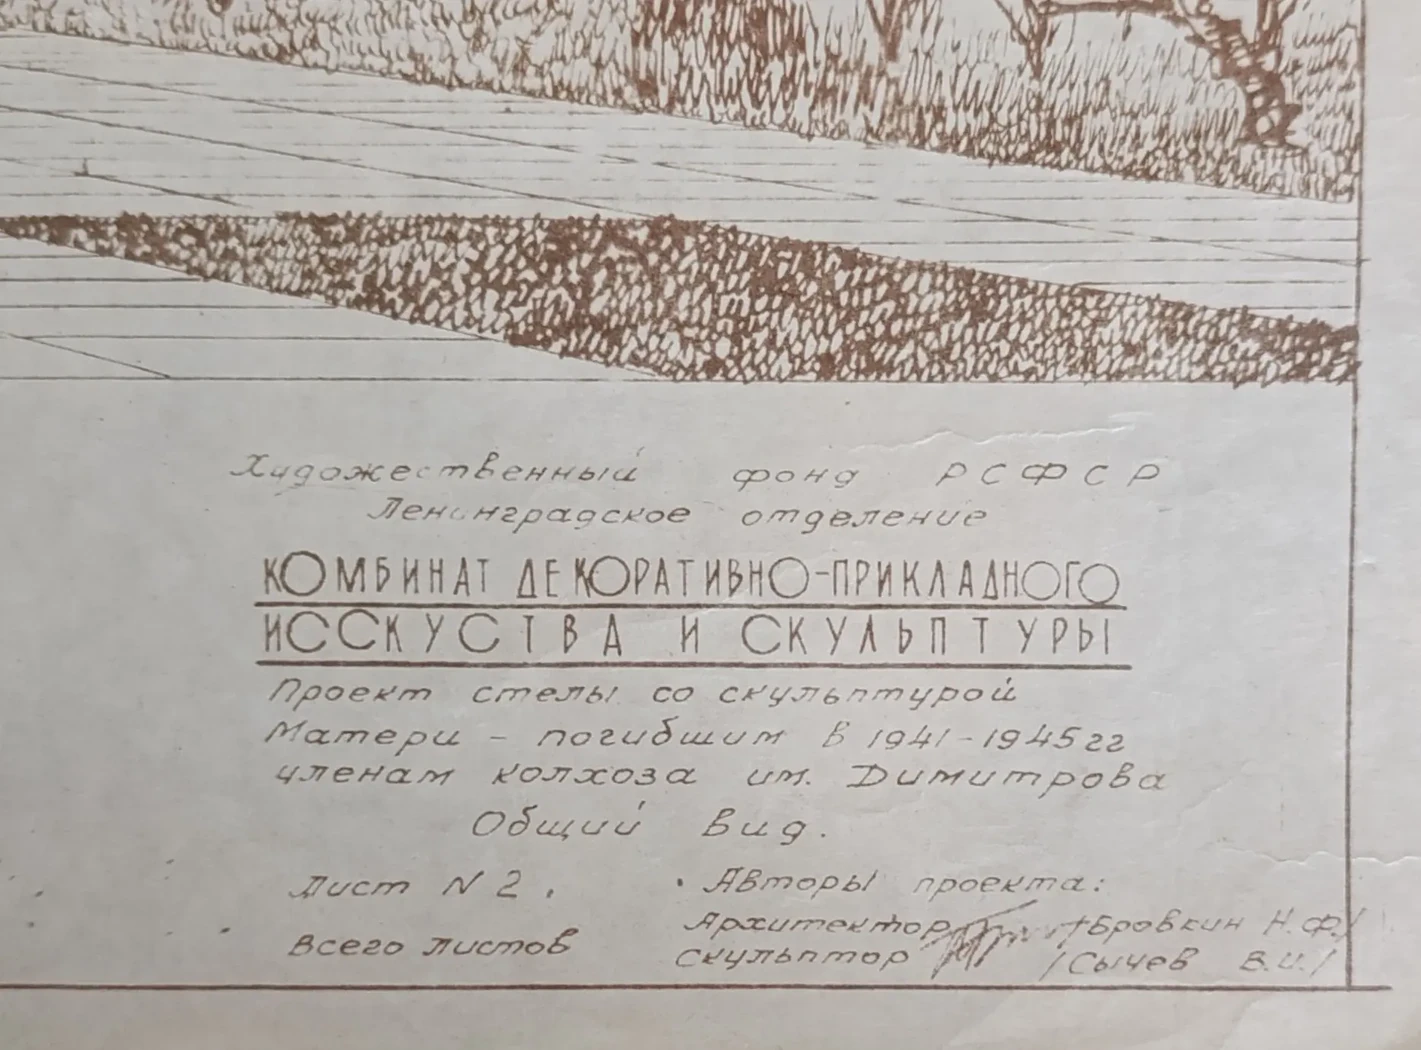 Художественный фонд РСФСР
Ленинградское отделение
КОМБИНАТ ДЕКОРАТИВНО-ПРИКЛАДНОГО
ИССКУСТВА И СКУЛЬПТУРЫ
Проект стелы со скульптурой
Матери - погибшим в 1941-1945гг
членам колхоза им. Димитрова
Общий вид.
Лист N 2.
Всего листов
Авторы проекта:
Архитектор /Бровкин Н.Ф./
Скульптор /Сычев В.И./